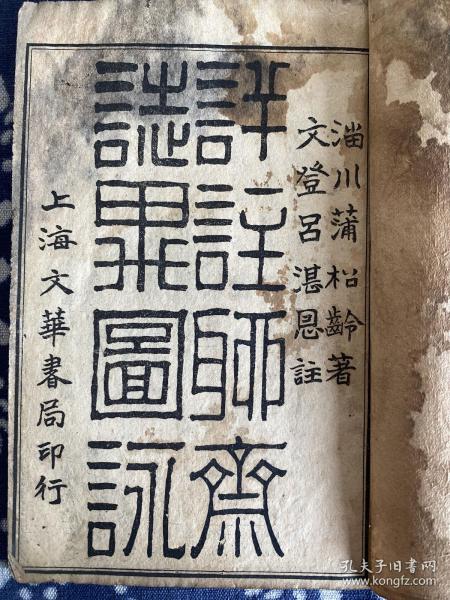 淄川蒲松齡著
文登呂湛恩註
詳註聊齋
誌異圖詠
上海文華書局印行
孔夫子旧书网
www.kongfz.com